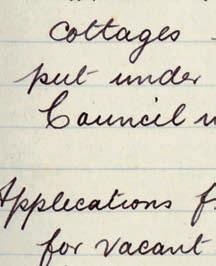 cottages
put under
Council
Applications
for vacant